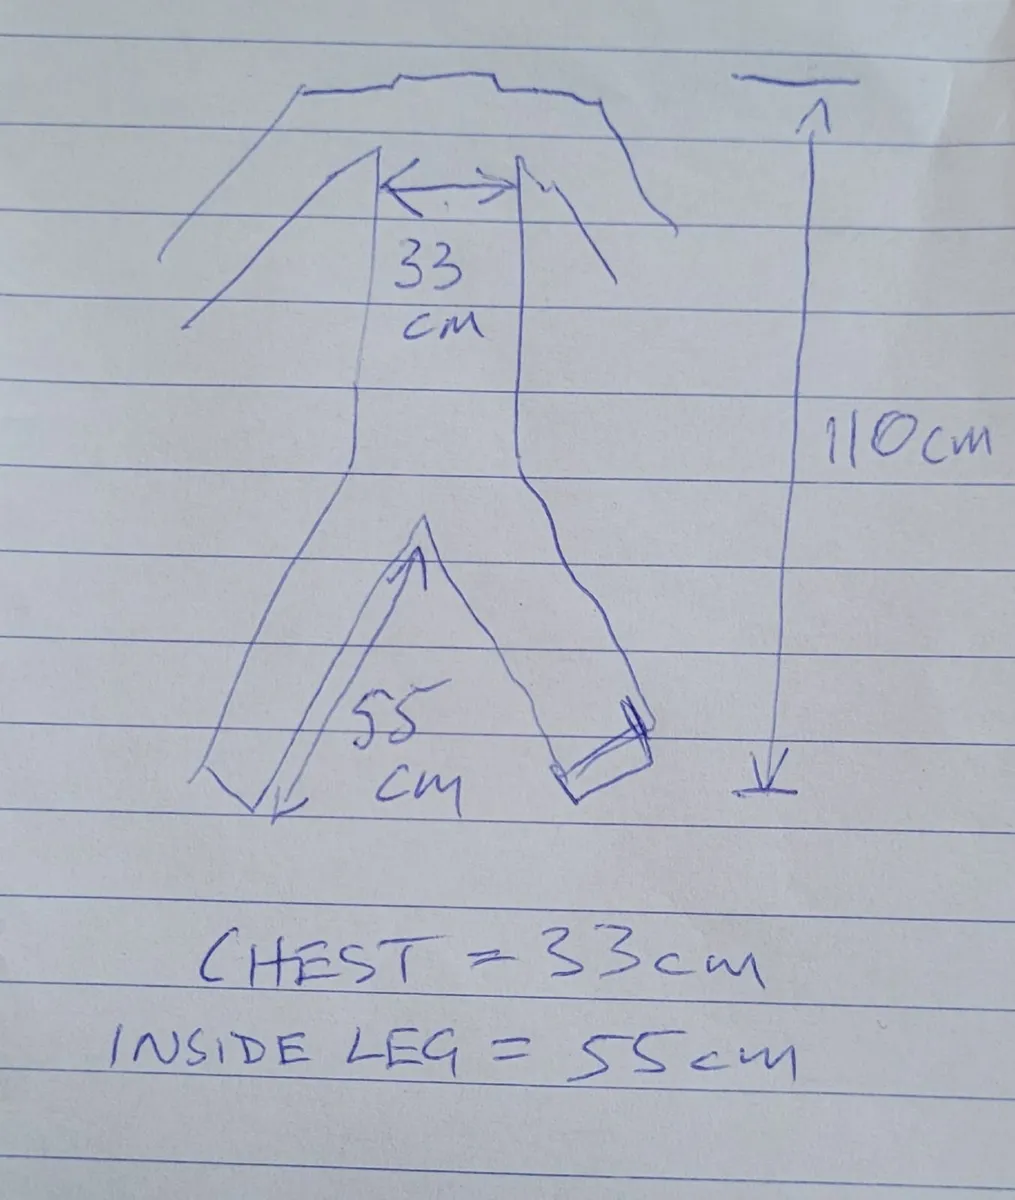 33
cm
110cm
55
cm
CHEST = 33cm
INSIDE LEG = 55cm